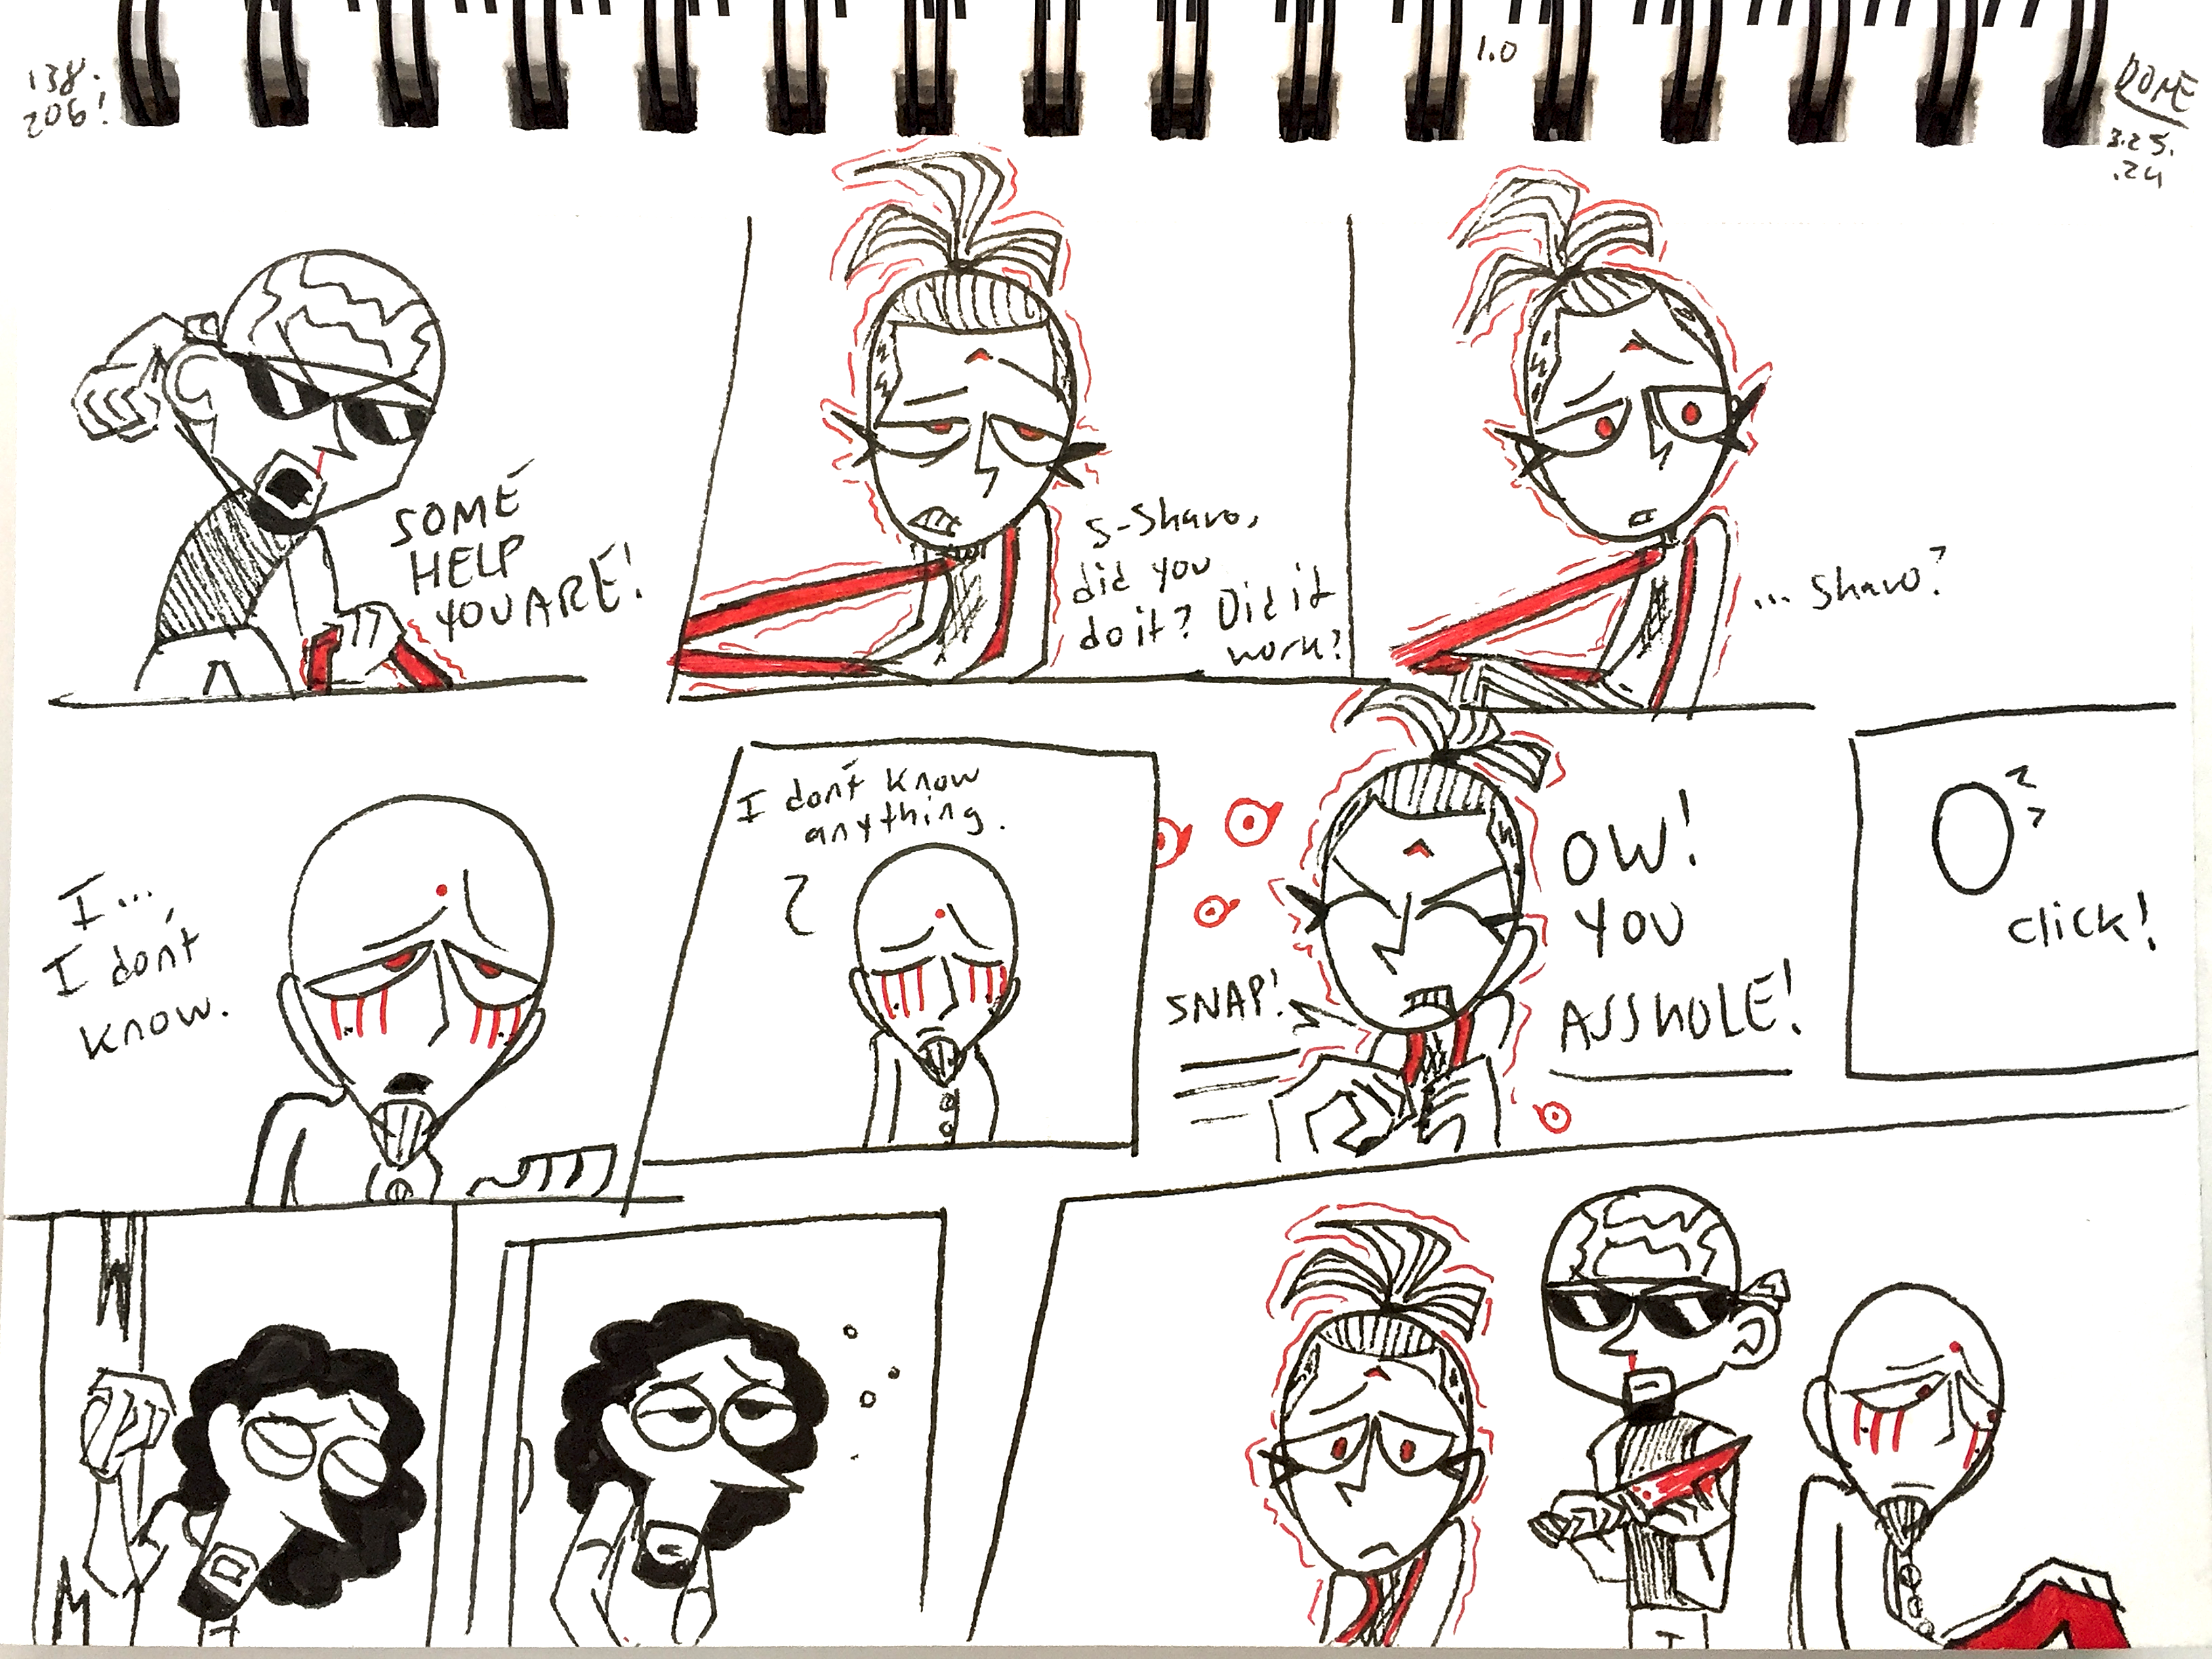 138.
206!
1.0
DONE
3.25.
.24
SOME
HELP
YOU ARE!
S-Shavo,
did you
do it? Did it
work?
... Shavo?
I...
I don't
know.
I don't know
anything.
SNAP!
OW!
YOU
ASSHOLE!
click!